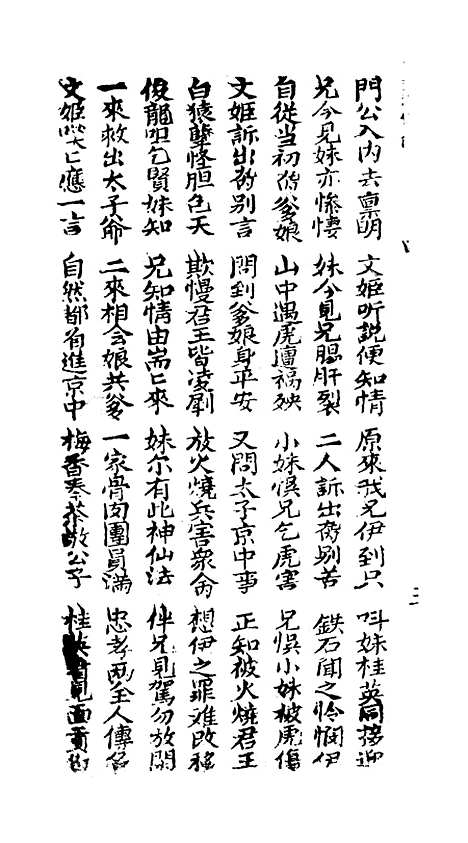 門公入內去稟明 文姬听説便知情 原來我兄伊到只 呌妹桂英同移迎
兄今見妹亦惨悽 妹今見兄胆肝裂 二人訴出起別苦 鉄石聞之怜憫伊
自從当初別爹娘 山中遇虎遭禍殃 小妹悞兄乞虎害 兄悞小妹被虎傷
文姬訴出别言 問到爹娘身平安 又問太子京中事 正知被火燒君王
白猿孽怪胆包天 欺慢君王皆凌剭 放火燒兵害衆命 想伊之罪难改移
俊龍呾乞賢妹知 兄知情由耑匕來 妹尔有此神仙法 伴兄見駕勿放閑
一來救出太子爺 二來相会娘共爹 一家骨肉團員满 忠孝两全人傳名
文姬咲匕應一言 自然都有進京中 梅香奉茶敬公子 桂英見面
三